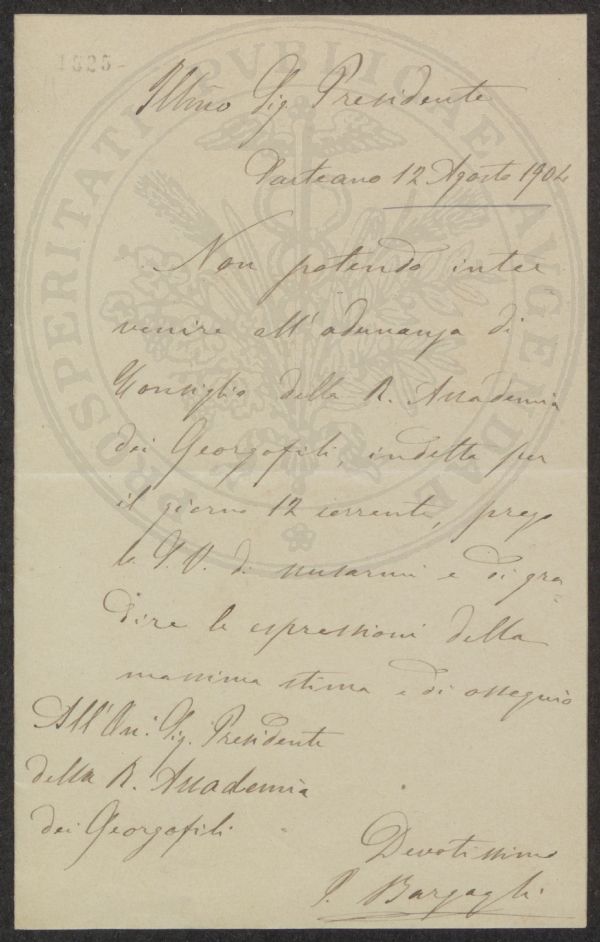 1625-
Illmo Sig. Presidente
Sarteano 12 Agosto 1904
Non potendo inter
venire all'adunanza di
Consiglio della R. Accademia
dei Georgofili, indetta per
il giorno 12 corrente, prego
la S. V. di scusarmi e di gra-
dire le espressioni della
massima stima e di ossequio
All'On. Sig. Presidente
della R. Accademia
dei Georgofili
Devotissimo
P. Bargagli
PROSPERITATI PVBLICAE AVGENDAE